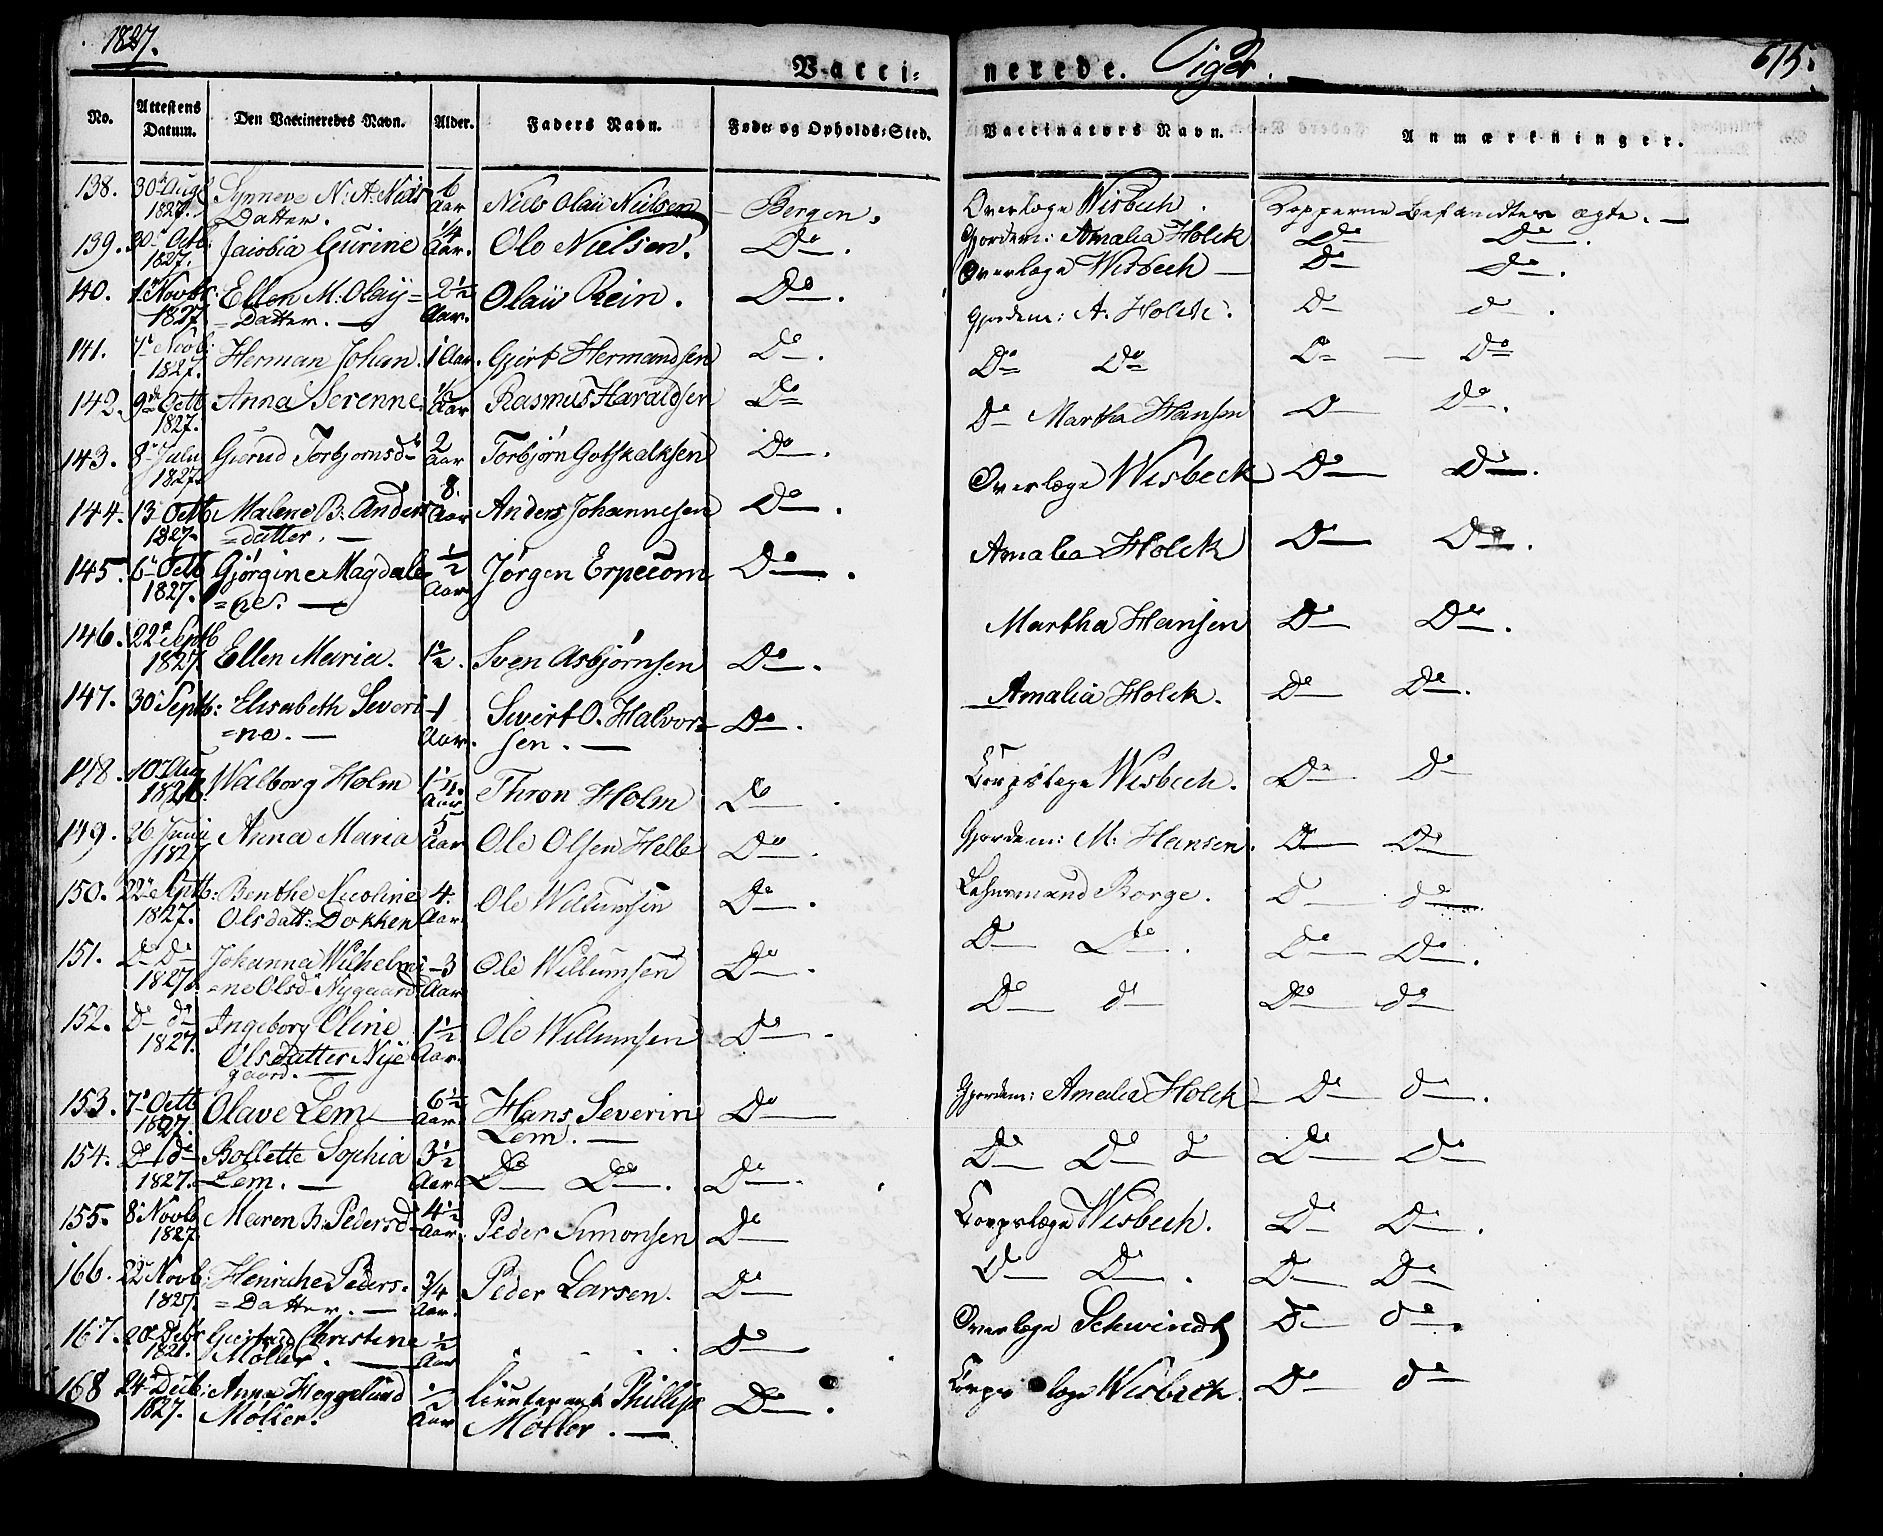 1827.
Vacci=
nerede. Piger.
615.
No. Attestens Datum. Den Vaccineredes Navn. Alder. Faders Navn. Føde- og Opholds-Sted. Vaccinateurs Navn. Anmærkninger.
138. 30t Augs 1827. Synneve N: A: Niels Datter. 6 Aar Niels Olaü Nielsen Bergen. Overlæge Wisbech. Kopperne befandtes ægte.
139. 30t Octb: 1827. Jacobia Gurine 1/4 Aar. Ole Nielsen. Do. Gjordem: Amalia Holck Do Do.
140. 1t Novbr: 1827. Ellen M. Olay= =Datter. 2½ Aar. Olaü Rein. Do. Overlæge Wisbech Do Do.
Gjordem: A. Holck. Do do.
141. 7t Novb: 1827. Herman Johan. 1 Aar. Gjert Hermandsen Do. Do Do Do Do
142. 9de Octb 1827. Anna Serenne ½ Aar Rasmus Haraldsen Do Do Martha Hansen Do Do.
143. 8t Julii 1827. Giørud Torbjørnsdr 2 Aar Torbjørn Gotskalksen Do. Overlæge Wisbeck Do Do.
144. 13 Octb 1827. Malene B: Anders =datter. 8 Aar Anders Johannesen Do. Amalia Holck Do Do.
145. 6t Octb 1827. Gjørgine Magdale =ne. ½ Aar Jørgen Erpecom Do. Martha Hansen Do Do.
146. 22t Septb 1827. Ellen Maria. 1½. Sven Asbjørnsen Do. Amalia Holck. Do Do.
147. 30 Septb: Elisabeth Severi =na. 1 Aar. Sivert O. Halvor= sen. Do. Corpslæge Wisbech. Do Do
148. 10t Aug 1826. Walborg Holm 1¼ Aar Thron Holm Do. Gjordem: M. Hansen. Do Do
149. 26 Junii 1827 Anna Maria 5 Aar Ole Olsen Helle Do. Lehnsmand Borge. Do do
150. 22t Septb: 1827. Benthe Nicoline Olsdatt: Dokken 4. Aar. Ole Willumsen Do. Do Do. Do Do.
151. Do Do 1827. Johanna Wilhelmi =ne Olsd Nygaard 3 Aar Ole Willumsen Do. Do do Do do
152. Do do 1827. Ingeborg Oline Olsdatter Nye gaard. 1½ Aar. Ole Willumsen Do.
153. 7t Octb 1827. Olave Lem 6½ Aar. Hans Severin Lem. Do Gjordem: Amalia Holck Do do.
154. Do do 1827. Bollette Sophia Lem. 3½ Aar Do Do. Do. Do Do do Do do
155. 8t Novb 1827. Maren B: Pedersd 4½ Aar. Peder Simonsen Do Corpslæge Wisbech. Do Do.
166. 22t Novb: 1827. Henriche Peders= =Datter. 3/4 Aar. Peder Larsen. Do Do Do. Do Do
167. 20t Debr 1821. Giertrud Christine Møller. ½ Aar Do Overlæge Schwindt Do do.
168 24t Decb: 1827. Anna Heggelund Møller. ½ Aar Lieutenant Phillip Møller. Do. Corps læge Wisbech. Do do